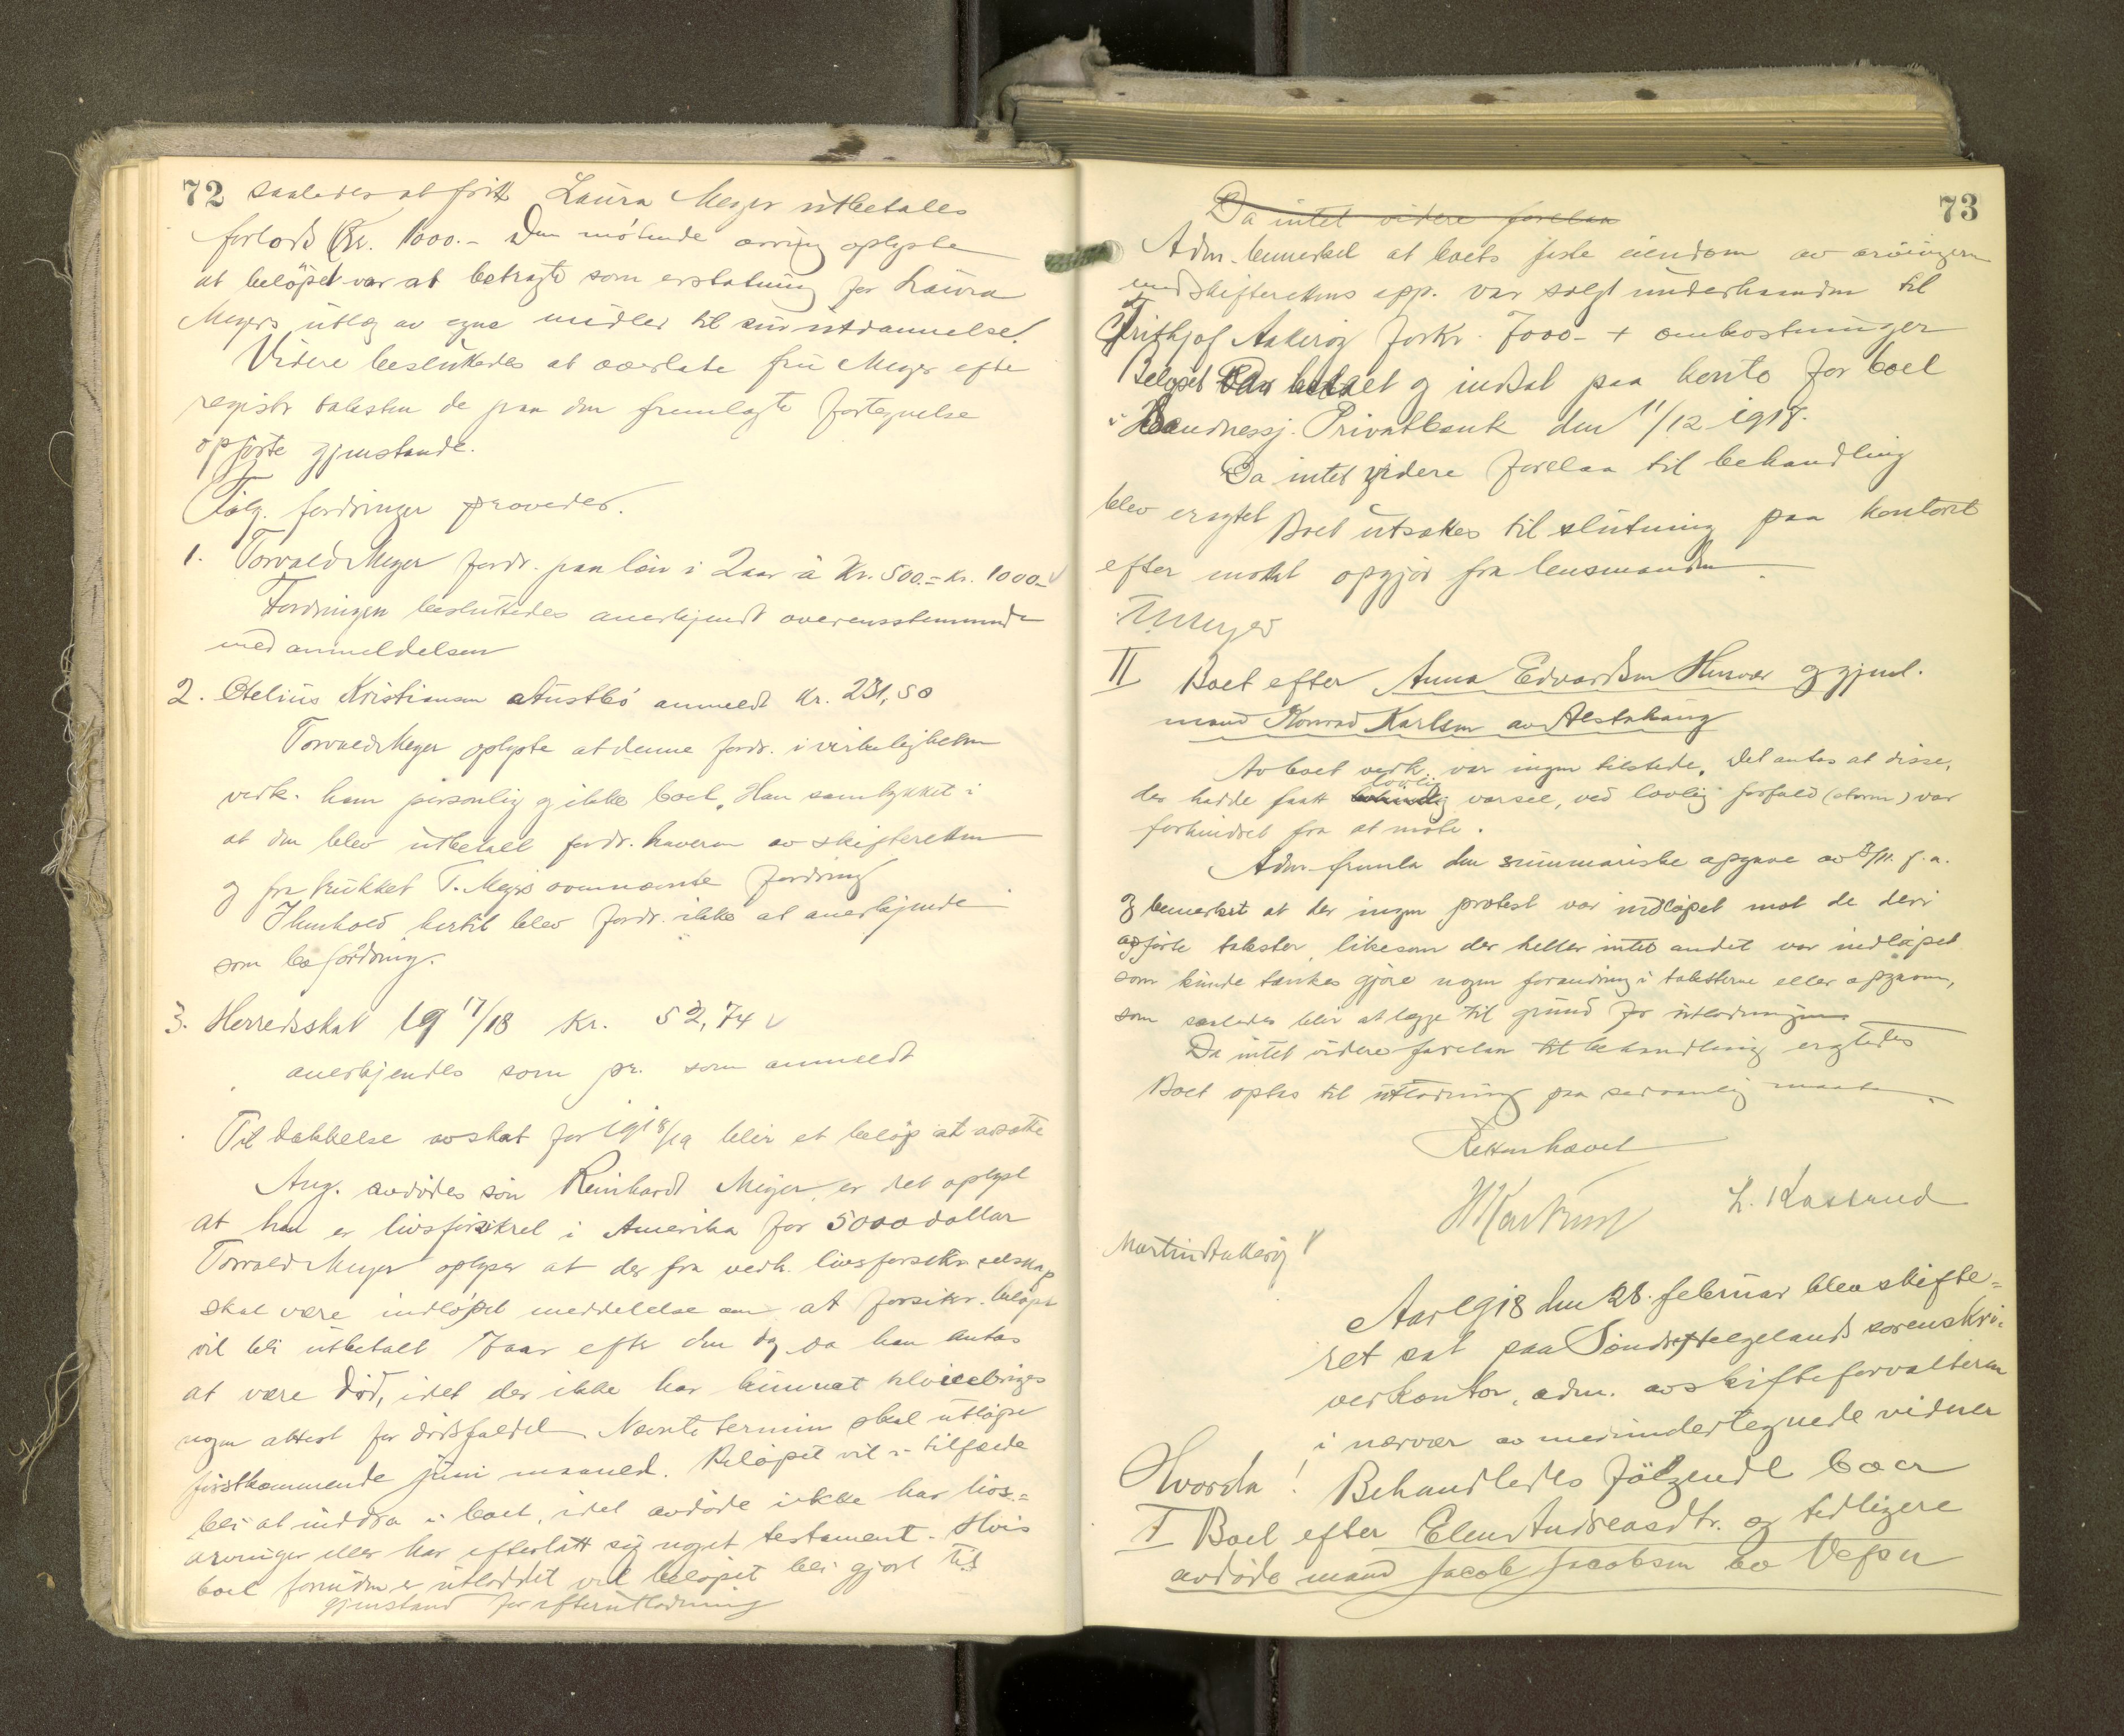 72 saaledes at frk Laura Meyer utbetales
forlods Kr. 1000.- Den mötende arving oplyste
at belöpet var at betragte som erstatning for Laura
Meyers utlæg av egne midler til sin utdannelse.
Videre besluttedes at overlate fru Meyer efter
registr. taksten de paa den fremlagte fortegnelse
opförte gjenstande.
Fölg. fordringer prövedes.
1. Torvald Meyer fordr. paa lön i 2 aar à Kr. 500.= Kr. 1000.-
Fordringen besluttedes anerkjendt overensstemmende
med anmeldelsen
2. Otelius Kristiansen Austbö anmeldt Kr. 231,50
Torvald Meyer oplyste at denne fordr. i virkeligheten
vedk. ham personlig og ikke boet. Han samtykket i
at den blev utbetalt fordr. haveren av skifteretten
og fratrukket T. Meyers ovennævnte fordring
I henhold hertil blev fordr. ikke at anerkjende
som bofordring.
3. Herredsskat 19 17/18 Kr. 52,74
anerkjendes som pr. som anmeldt
Til dækkelse av skat for 1918/19 blir et belöp at avsætte
Ang. avdödes sön Reinhardt Meyer, er det oplyst
at han er livsforsikret i Amerika for 5000 dollar
Torvald Meyer oplyser at der fra vedk. livsforsikr. selskap
skal være indlöpet meddelelse om at forsikr. belöpet
vil bli utbetalt 7 aar efter den dag da han antas
at være död, idet der ikke har kunnet tilveiebringes
nogen attest for dödsfaldet. Nævnte termin skal utlöpe
förstkommende juni maaned. Belöpet vil i tilfælde
bli at inddra i boet, idet avdöde ikke har livs-
arvinger eller har efterlatt sig noget testament. Hvis
boet forinden er utloddet vil belöpet bli gjort til
gjenstand for efterutlodning
73
Da intet videre forelaa
Adm. bemerket at boets faste eiendom av arvingerne
med skifterettens app. var solgt underhaanden til
Frithjof Aakeröy for Kr. 7000- + omkostninger
Belöpet var betalt og indsat paa konto for boet
i Sandnessj. Privatbank den 11/12 1917.
Da intet videre forelaa til behandling
blev eragtet Boet utsættes til slutning paa kontoret
efter mottat opgjör fra lensmanden.
T Meyer
II Boet efter Anna Edvardsen Husvær og gjenl.
mand Konrad Karlsen av Alstahaug
Av boet vedk. var ingen tilstede. Det antas at disse,
der hadde faatt lovlig varsel, ved lovlig forfald (storm) var
forhindret fra at möte.
Adm. fremla den summariske opgave av /11. f.a.
og bemerket at der ingen protest var indlöpet mot de deri
opförte takster, likesom der heller intet andet var indlöpet
som kunde tænkes gjöre nogen forandring i taksterne eller opgaven,
som saaledes blir at lægge til grund for utlodningen.
Da intet videre forelaa til behandling eragtedes
Boet optas til utlodning paa sedvanlig maate.
Retten hævet
L. Kaasrud
Martin Aakeröy
Aar 1918 den 28. februar blev skifte-
ret sat paa Söndre Helgelands sorenskri-
verkontor, adm. av skifteforvalteren
i nærvær av medundertegnede vidner
Hvorda! Behandledes följende boer
I Boet efter Elen Andreasdtr. og tidligere
avdöde mand Jacob Jacobsen bo Vefsn